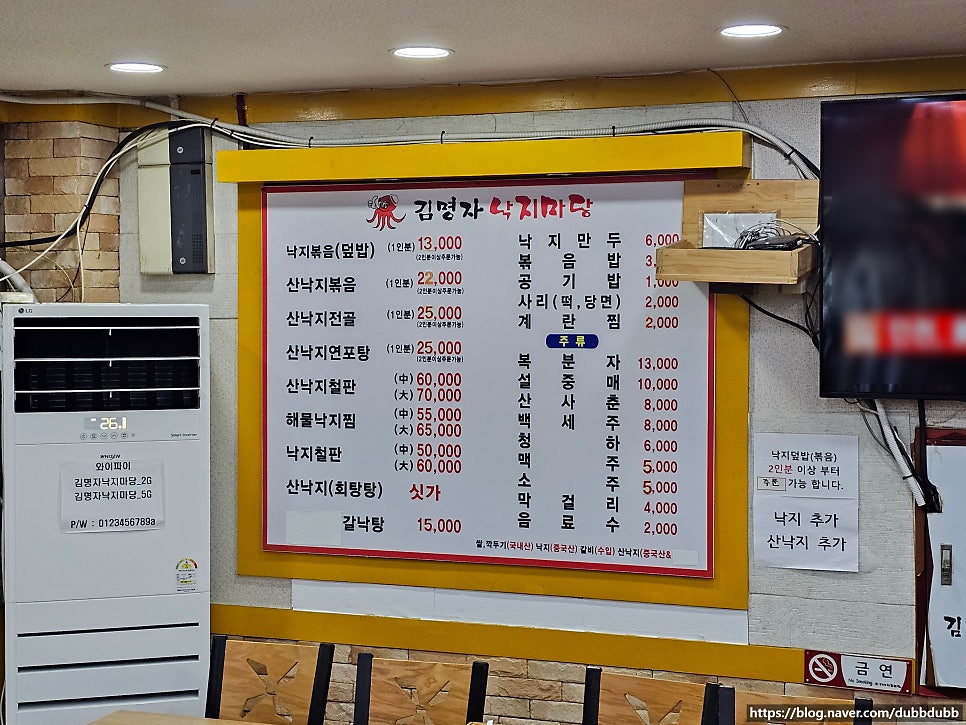 김명자 낙지마당
낙지볶음(덮밥) (1인분) 13,000
(2인분이상주문가능)
산낙지볶음 (1인분) 22,000
(2인분이상주문가능)
산낙지전골 (1인분) 25,000
(2인분이상주문가능)
산낙지연포탕 (1인분) 25,000
(2인분이상주문가능)
산낙지철판 (中) 60,000
(大) 70,000
해물낙지찜 (中) 55,000
(大) 65,000
낙지철판 (中) 50,000
(大) 60,000
산낙지(회탕탕) 싯가
갈낙탕 15,000
낙지만두 6,000
볶음밥 3,
공기밥 1,000
사리(떡,당면) 2,000
계란찜 2,000
주류
복분자 13,000
설중매 10,000
산사춘 8,000
백세주 8,000
청하 6,000
맥주 5,000
소주 5,000
막걸리 4,000
음료수 2,000
쌀,깍두기(국내산) 낙지(중국산) 갈비(수입) 산낙지(중국산&
LG
26.1
Smart Inverter
WHISEN
와이파이
김명자낙지마당_2G
김명자낙지마당_5G
P/W : 0123456789a
낙지덮밥(볶음)
2인분 이상 부터
주문 가능 합니다.
낙지 추가
산낙지 추가
김
금연
No Smoking
https://blog.naver.com/dubbdubb